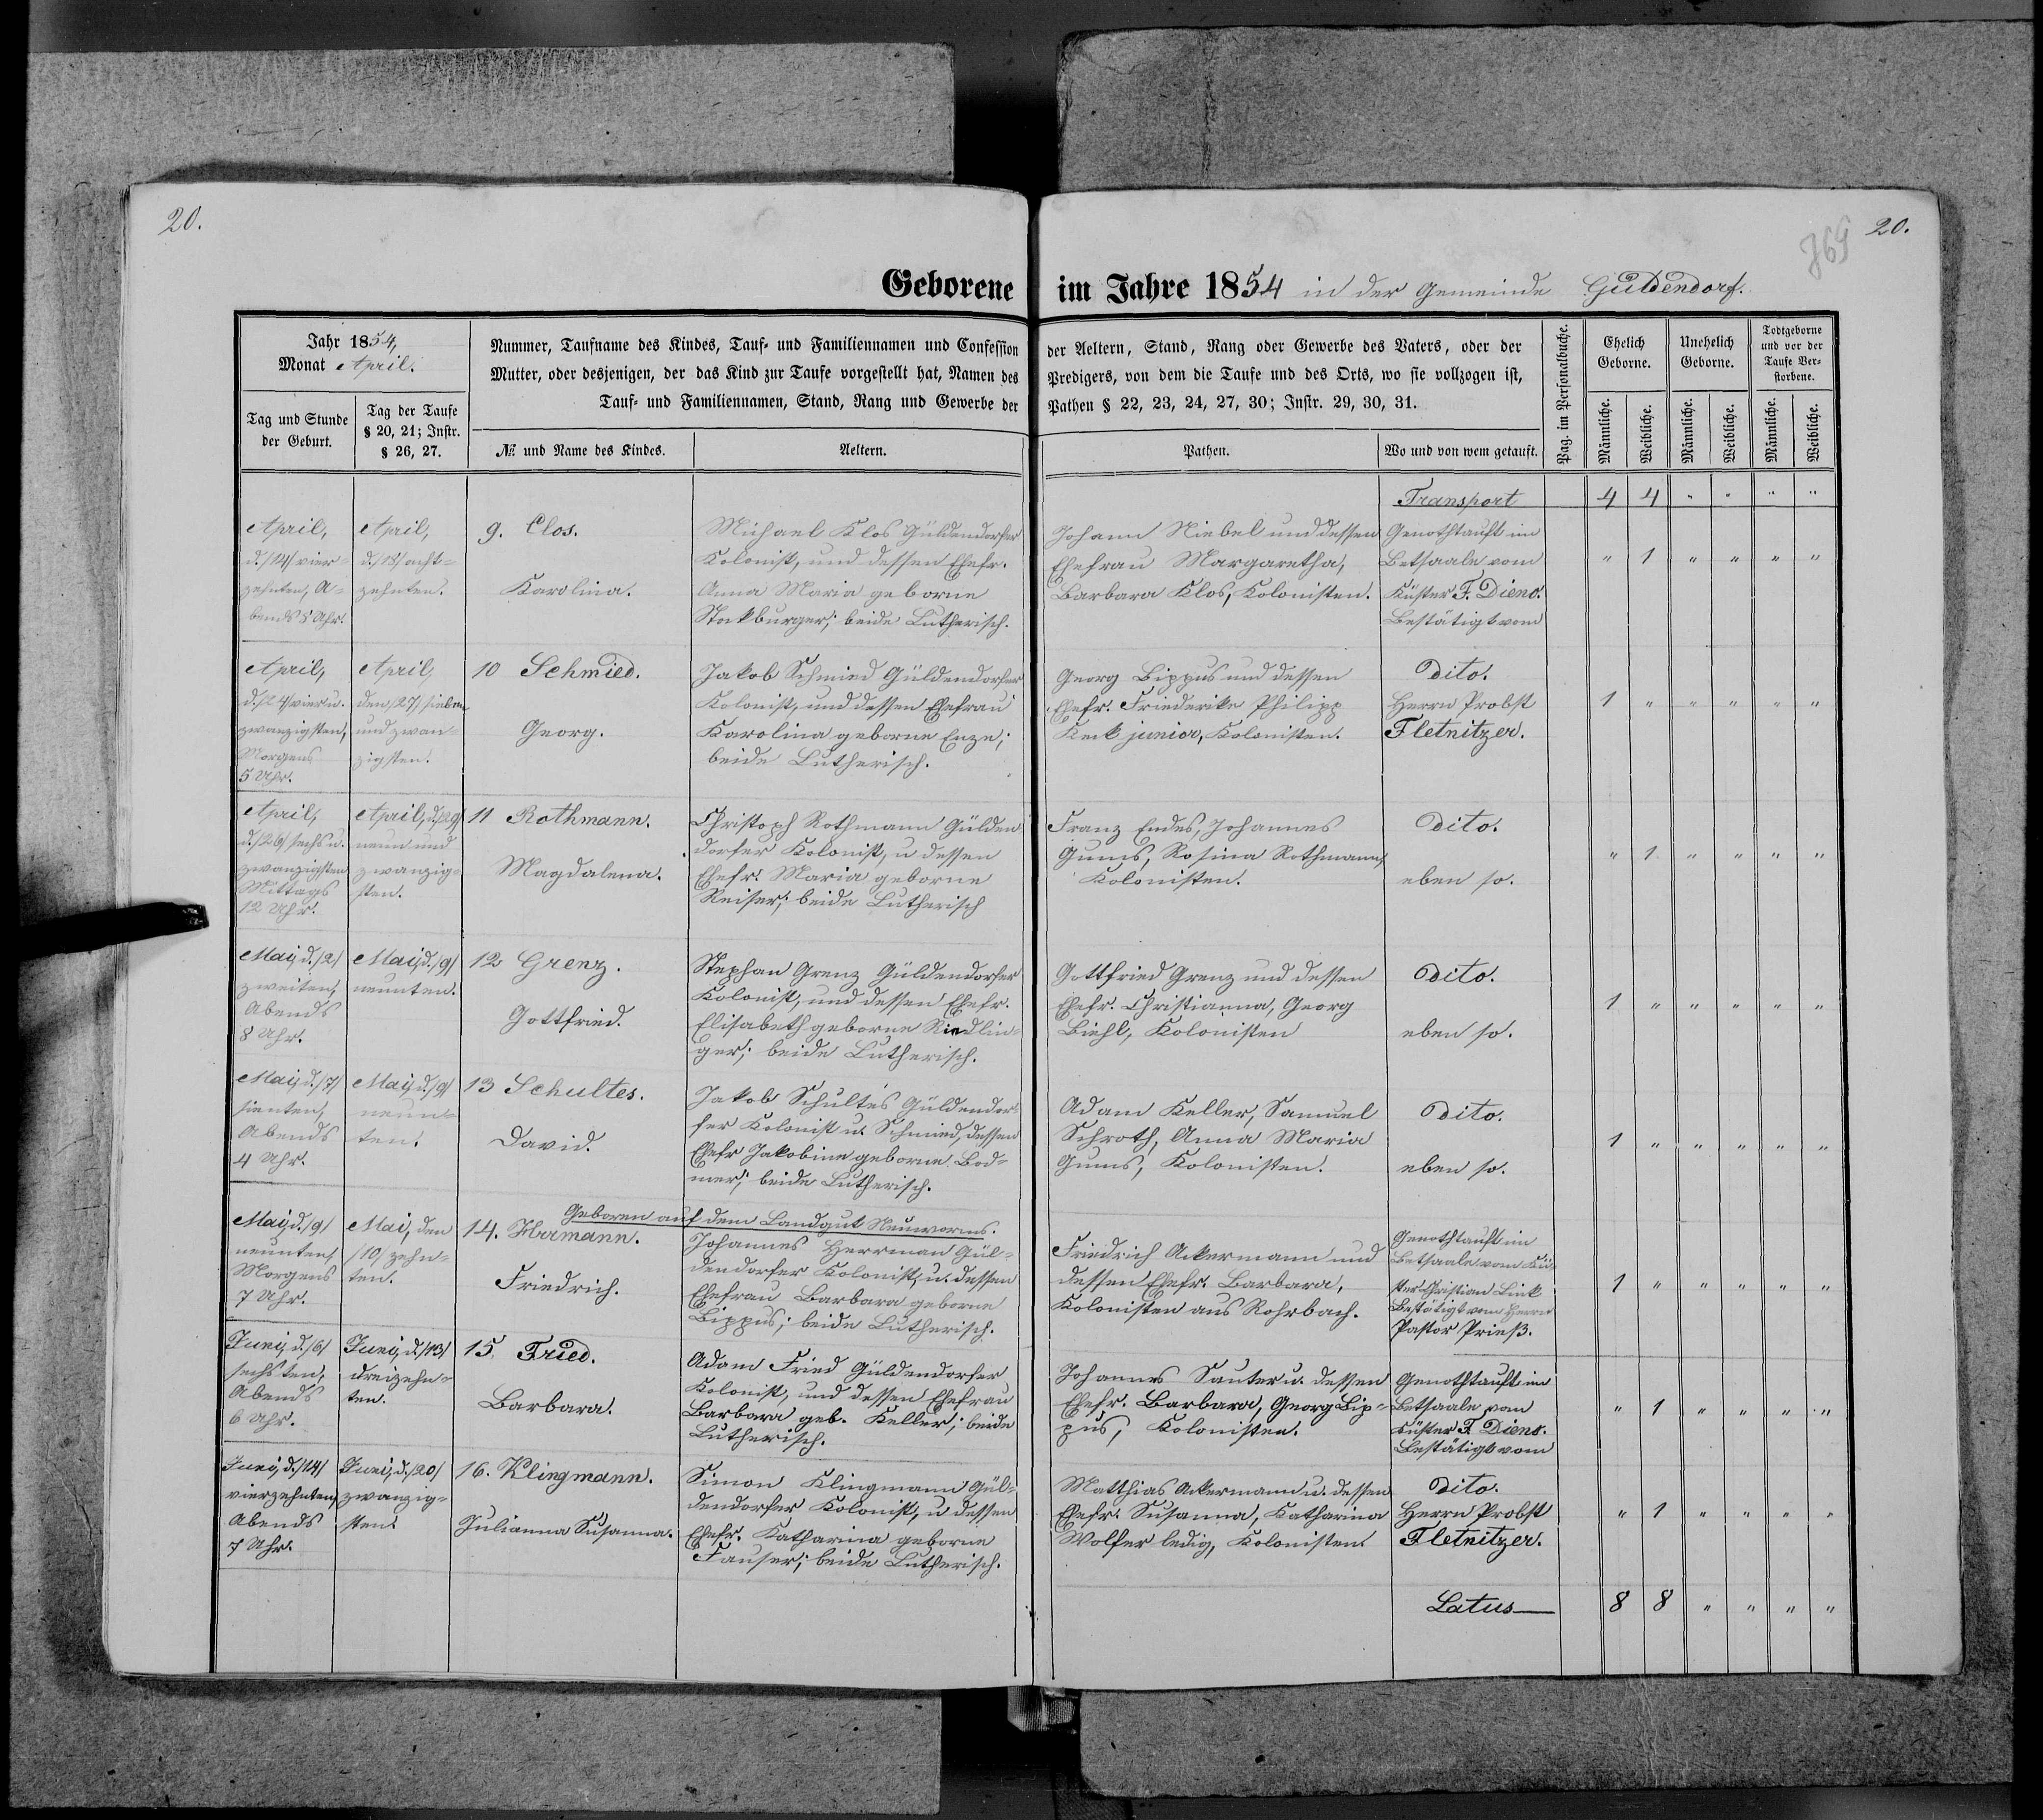 20.
20.
769
Geborene im Jahre 1854 in der Gemeinde Güldendorf.
Jahr 1854,
Monat April.
Tag und Stunde
der Geburt.
Tag der Taufe
§ 20, 21; Instr.
§ 26, 27.
Nummer, Taufname des Kindes, Tauf- und Familiennamen und Confession der Aeltern, Stand, Rang oder Gewerbe des Vaters, oder der
Mutter, oder desjenigen, der das Kind zur Taufe vorgestellt hat, Namen des Predigers, von dem die Taufe und des Orts, wo sie vollzogen ist,
Tauf- und Familiennamen, Stand, Rang und Gewerbe der Pathen § 22, 23, 24, 27, 30; Instr. 29, 30, 31.
№ und Name des Kindes.
Aeltern.
Pathen.
Wo und von wem getauft.
Pag. im Personalbuche.
Ehelich
Geborne.
Unehelich
Geborne.
Todtgeborne
und vor der
Taufe Ver-
storbene.
Männliche.
Weibliche.
Männliche.
Weibliche.
Männliche.
Weibliche.
Transport 4 4 " " " "
April,
d. /14/ vier-
zehnten, A-
bends 8 Uhr.
April,
d. /18/ acht-
zehnten.
9. Clos.
Karolina.
Michael Klos Güldendorfer
Kolonist, und dessen Ehefr.
Anna Maria geborne
Stockburger; beide Lutherisch.
Johann Niebel und dessen
Ehefrau Margaretha,
Barbara Klos, Kolonisten.
Genothtauft im
Betsaale vom
Küster F. Dieno.
Bestätigt vom
" 1 " " " "
April,
d. /24/ vier u.
zwanzigsten,
Morgens
5 Uhr.
April,
den /27/ sieben
und zwan-
zigsten.
10 Schmied.
Georg.
Jakob Schmied Güldendorfer
Kolonist, und dessen Ehefrau
Karolina geborne Enze;
beide Lutherisch.
Georg Bippus und dessen
Ehefr. Friederike Philipp
Keck junior, Kolonisten.
Dito.
Herrn Probst
Fletnitzer.
1 " " " " "
April,
d. /26/ sechs u.
zwanzigsten
Mittags
12 Uhr.
April, d. /29/
neun und
zwanzig-
sten.
11 Rothmann.
Magdalena.
Christoph Rothmann Gülden
dorfer Kolonist, u dessen
Ehefr. Maria geborne
Reiser; beide Lutherisch
Franz Endes, Johannes
Gums, Rosina Rothmann,
Kolonisten.
Dito.
eben so.
" 1 " " " "
Mai, d. /2/
zweiten,
Abends
8 Uhr.
Mai, d. /9/
neunten.
12 Grenz.
Gottfried.
Stephan Grenz Güldendorfer
Kolonist, und dessen Ehefr.
Elisabeth geborne Riedlin-
ger; beide Lutherisch.
Gottfried Grenz und dessen
Ehefr. Christianna, Georg
Biehl, Kolonisten
Dito.
eben so.
1 " " " " "
Mai, d. /7/
sienten,
Abends
4 Uhr.
Mai, d. /9/
neun-
ten.
13 Schultes.
David.
Jakob Schultes Güldendor-
fer Kolonist u. Schmied, dessen
Ehefr Jakobine geborne Bod-
mer; beide Lutherisch.
Adam Keller, Samuel
Schroth, Anna Maria
Gums, Kolonisten.
Dito.
eben so.
1 " " " " "
Geboren auf dem Landgut Neuworms.
Mai, d. /9/
neunten,
Morgens
7 Uhr.
Mai, den
/10/ zehn-
ten.
14. Herrmann.
Friedrich.
Johannes Herrman Gül-
dendorfer Kolonist, u. dessen
Ehefrau Barbara geborne
Bippus; beide Lutherisch.
Friedrich Ackermann und
dessen Ehefr. Barbara,
Kolonisten aus Rohrbach.
Genothtauft im
Betsaale vom Kü-
ster Christian Link
Bestätigt vom Herrn
Pastor Prieß.
1 " " " " "
Juni, d. /6/
sechsten,
Abends
6 Uhr.
Juni, d. /13/
dreizehn-
ten.
15. Fried.
Barbara.
Adam Fried Güldendorfer
Kolonist, und dessen Ehefrau
Barbara geb. Keller; beide
Lutherisch.
Johannes Sauter u. dessen
Ehefr. Barbara, Georg Bip-
pus, Kolonisten.
Genothtauft im
Betsaale vom
Küster F. Dieno.
Bestätigt vom
" 1 " " " "
Juni, d. /14/
vierzehnten,
Abends
7 Uhr.
Juni, d. /20/
zwanzig-
sten.
16. Klingmann.
Julianna Susanna.
Simon Klingmann Gül-
dendorfer Kolonist, u dessen
Ehefr. Katharina geborne
Fauser; beide Lutherisch.
Matthias Ackermann u. dessen
Ehefr. Susanna, Katharina
Wolfer ledig, Kolonisten.
Dito.
Herrn Probst
Fletnitzer.
" 1 " " " "
Latus 8 8 " " " "